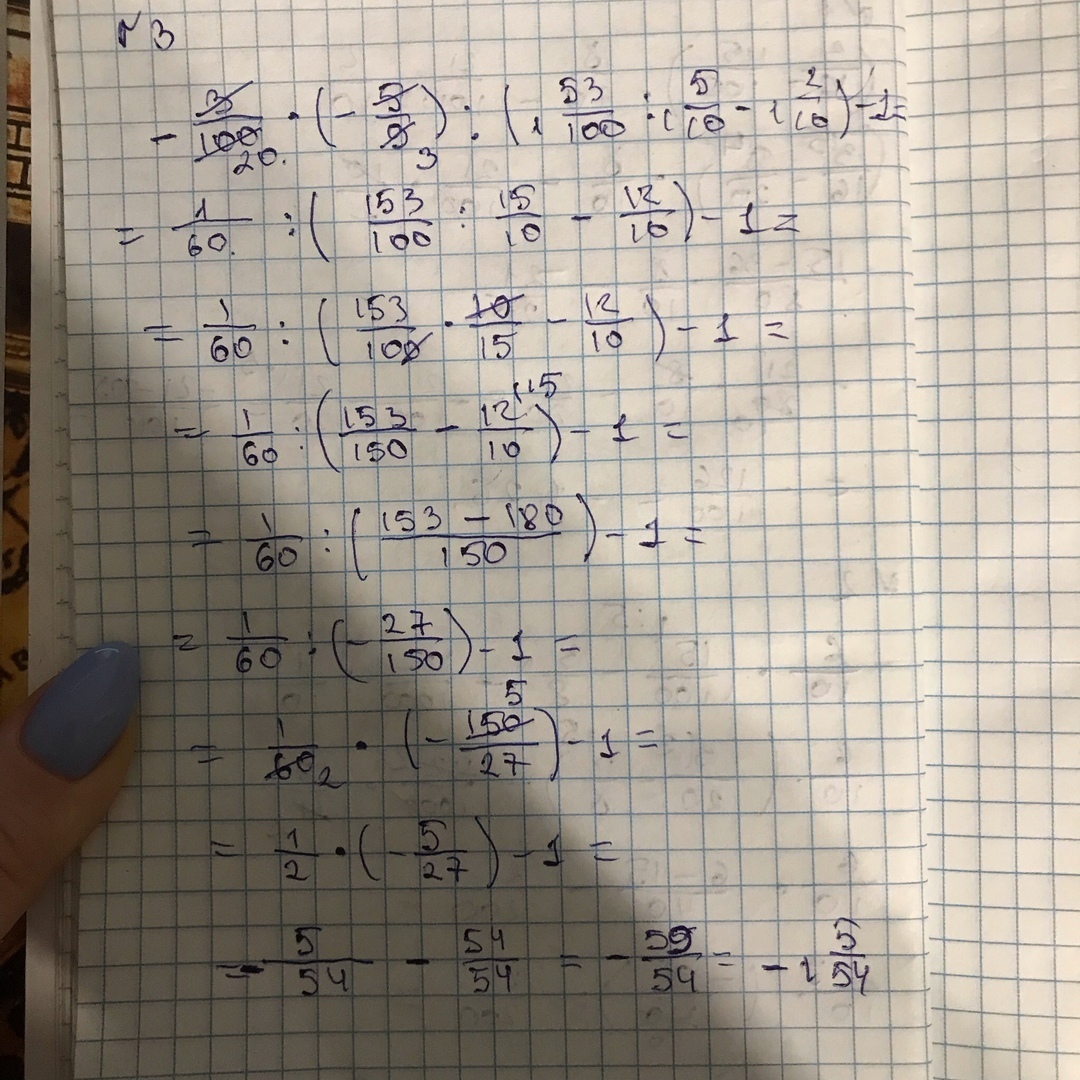 №3
- 3/100 20 · (- 5/9 3) : (1 53/100 : 1 5/10 - 1 2/10) - 1 =
= 1/60 : (153/100 : 15/10 - 12/10) - 1 =
= 1/60 : (153/100 · 10/15 - 12/10) - 1 =
= 1/60 : (153/150 - 12/10 ^(15)) - 1 =
= 1/60 : ((153 - 180)/150) - 1 =
= 1/60 : (- 27/150) - 1 =
= 1/60 2 · (- 150 5/27) - 1 =
= 1/2 · (- 5/27) - 1 =
= - 5/54 - 54/54 = - 59/54 = - 1 5/54